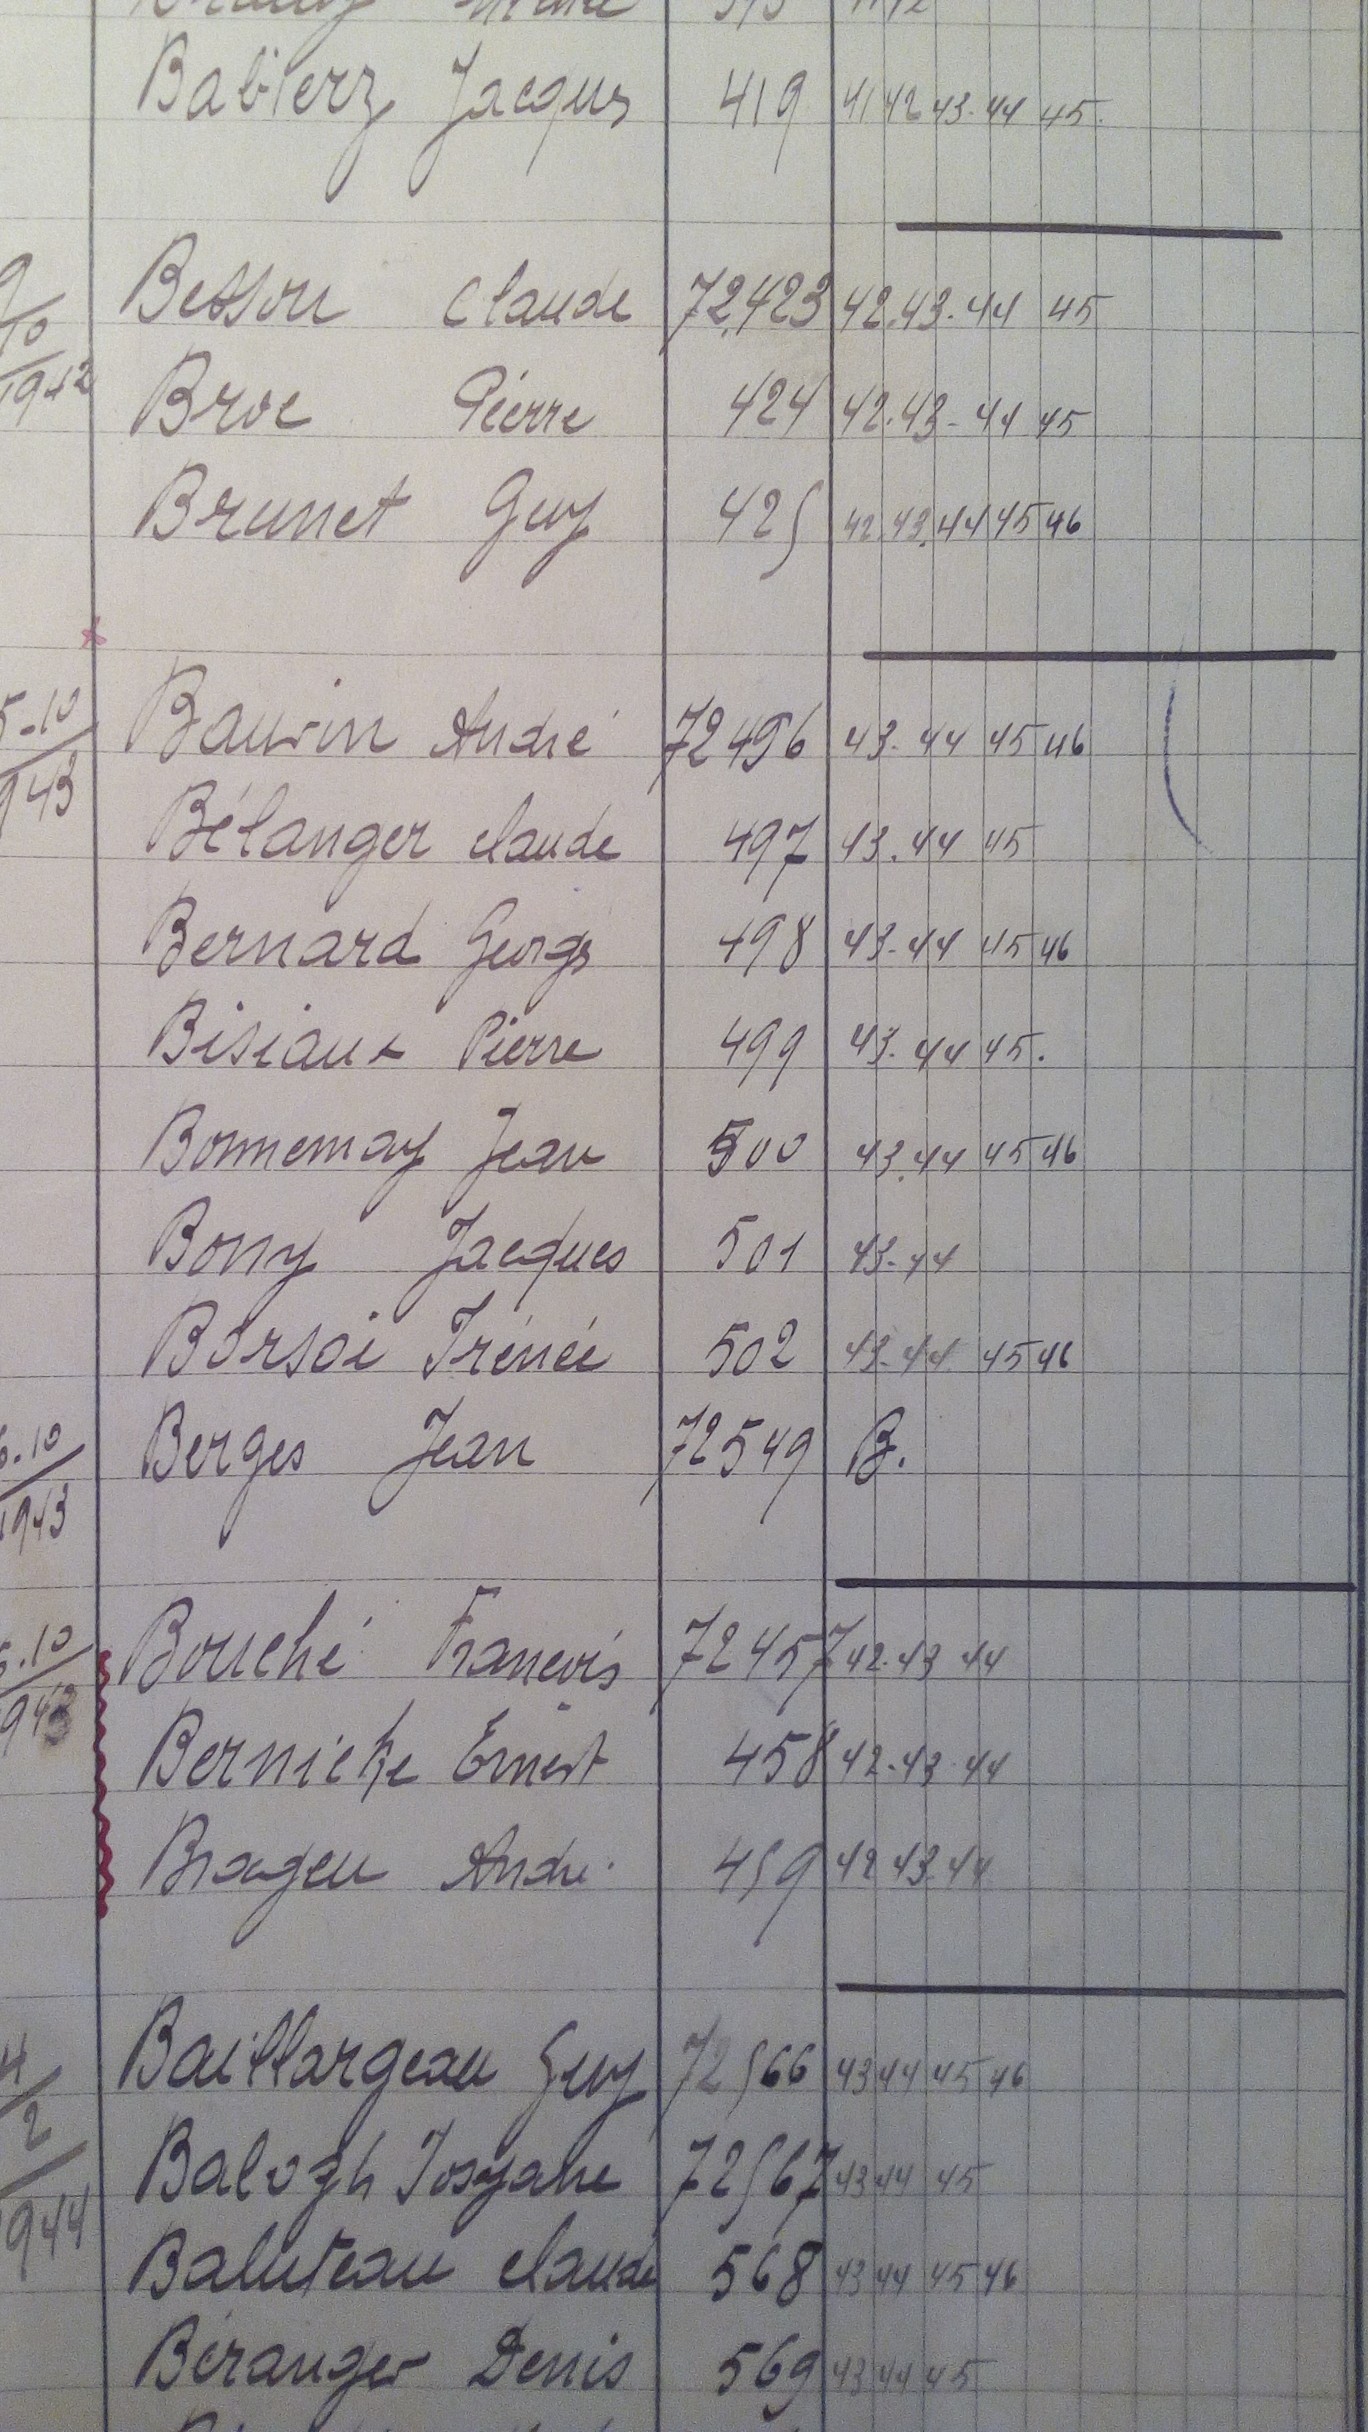 Babierz Jacques 419 41 42 43. 44 45.
Besson Claude 72.423 42.43.44 45
Broc Pierre 424 42.43-44 45
1942
Brunet Guy 425 42.43.44 45 46
Bauvin André 72496 43.44 45 46
Bélanger Claude 497 43.44 45
943
Bernard Georges 498 43.44 45 46
Bisiaux Pierre 499 43.44 45.
Bonnemay Jean 500 43.44 45 46
Bony Jacques 501 43-44
Borsoi Irénée 502 43-44 45 46
Berges Jean 72549 B.
1943
Bouché François 72457 42.43 44
943
Bernicke Ernest 458 42.43 44
Brageu André 459 42 43.44
Baillargeau Guy 72566 43 44 45 46
Balogh Josyane 72567 43 44 45
944
Baluteau Claude 568 43 44 45 46
Béranger Denis 569 43 44 45